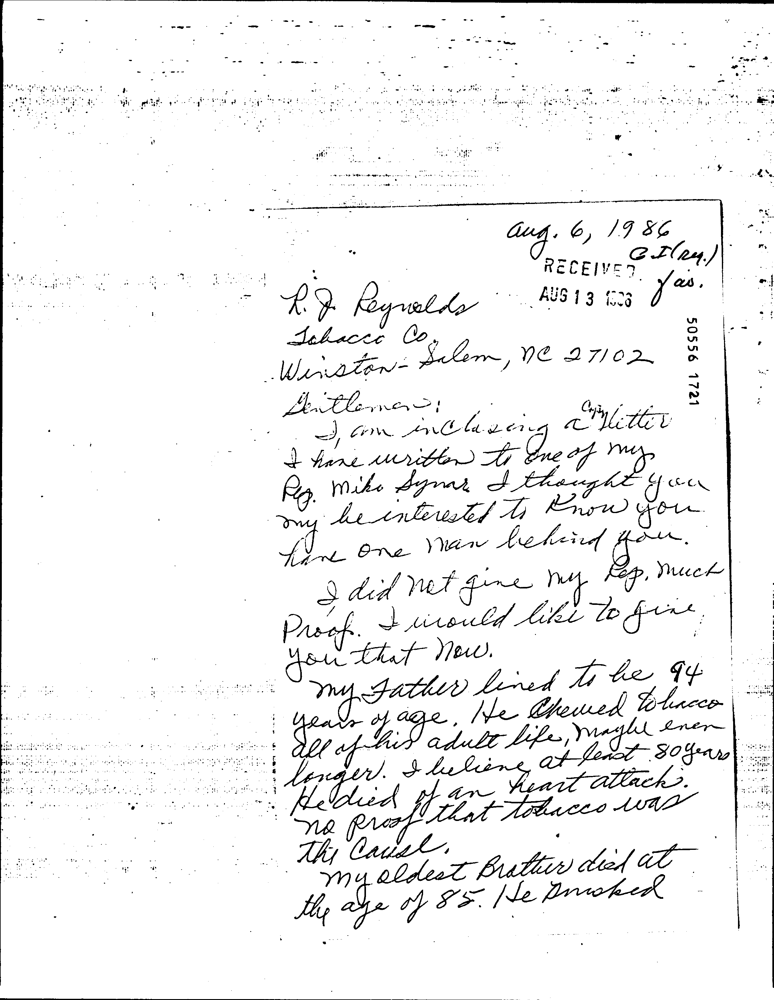 Aug. 6, 1986
RECEIVED
AUG 13 1986
R. J. Reynolds
Tobacco Co.
Winston-Salem, NC 27102
50556 1721
Gentlemen:
I, am inclosing a Copy letter
I have written to one of my
Rep. Mike Synar I thought you
my be interested to know you
have one man behind you.
I did not give my Rep. much
Proof. I would like to give
you that now.
My Father lived to be 94
years of age. He Chewed tobacco
all of his adult life, maybe even
longer. I believe at least 80 years
He died of an heart attack.
no proof that tobacco was
the Cause.
My oldest Brother died at
the age of 85. He smoked